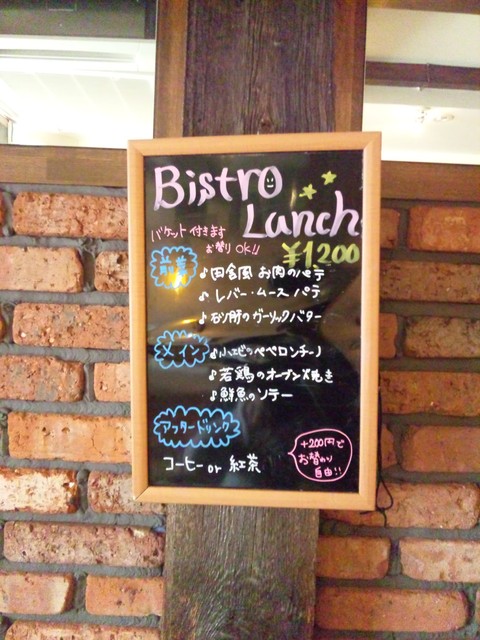 Bistro
Lanch
バケット付きます
お替り OK!!
¥1200
前菜
♪田舎風 お肉のパテ
♪レバー・ムース パテ
♪砂肝のガーリックバター
メイン
♪小エビのペペロンチーノ
♪若鶏のオーブン焼き
♪鮮魚のソテー
アフタードリンク
コーヒー or 紅茶
+200円で
お替わり
自由!!